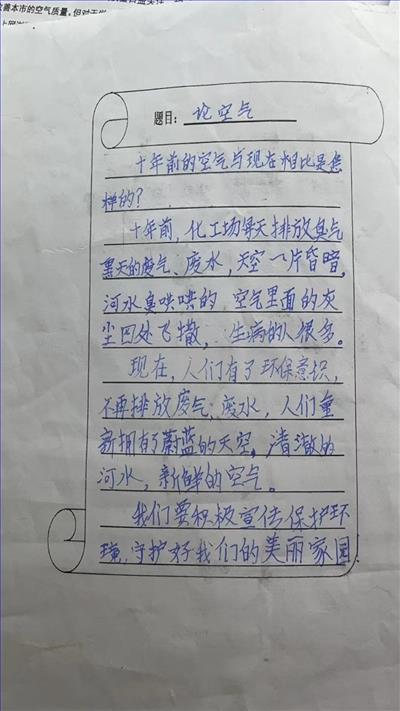 善本市的空气质量,但对于
题目: 论空气
十年前的空气与现在相比是怎
样的?
十年前,化工场每天排放臭气
熏天的废气、废水,天空一片昏暗,
河水臭哄哄的,空气里面的灰
尘四处飞撒,生病的人很多。
现在,人们有了环保意识,
不再排放废气,废水,人们重
新拥有了蔚蓝的天空,清澈的
河水,新鲜的空气。
我们要积极宣传保护环
境,守护好我们的美丽家园.